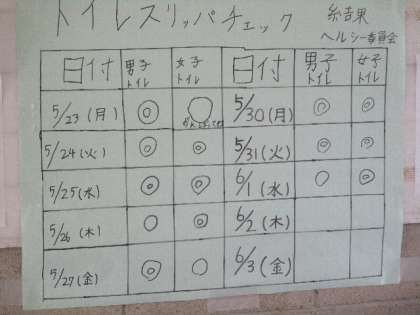 トイレスリッパチェック 結果
ヘルシー委員会
日付 男子トイレ 女子トイレ 日付 男子トイレ 女子トイレ
5/23(月) ◎ ○ 5/30(月) ◎ ◎
5/24(火) ◎ ◎ 5/31(火) ◎ ◎
5/25(水) ◎ ◎ 6/1(水) ○ ◎
5/26(木) ○ ◎ 6/2(木)
5/27(金) ◎ ○ 6/3(金)